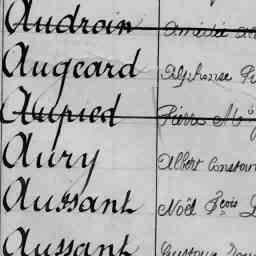 Audroin Amédée
Augeard Alphonse
Aupied Pierre M
Aury Albert Constant
Aussant Noël Fçois
Aussant Gustave